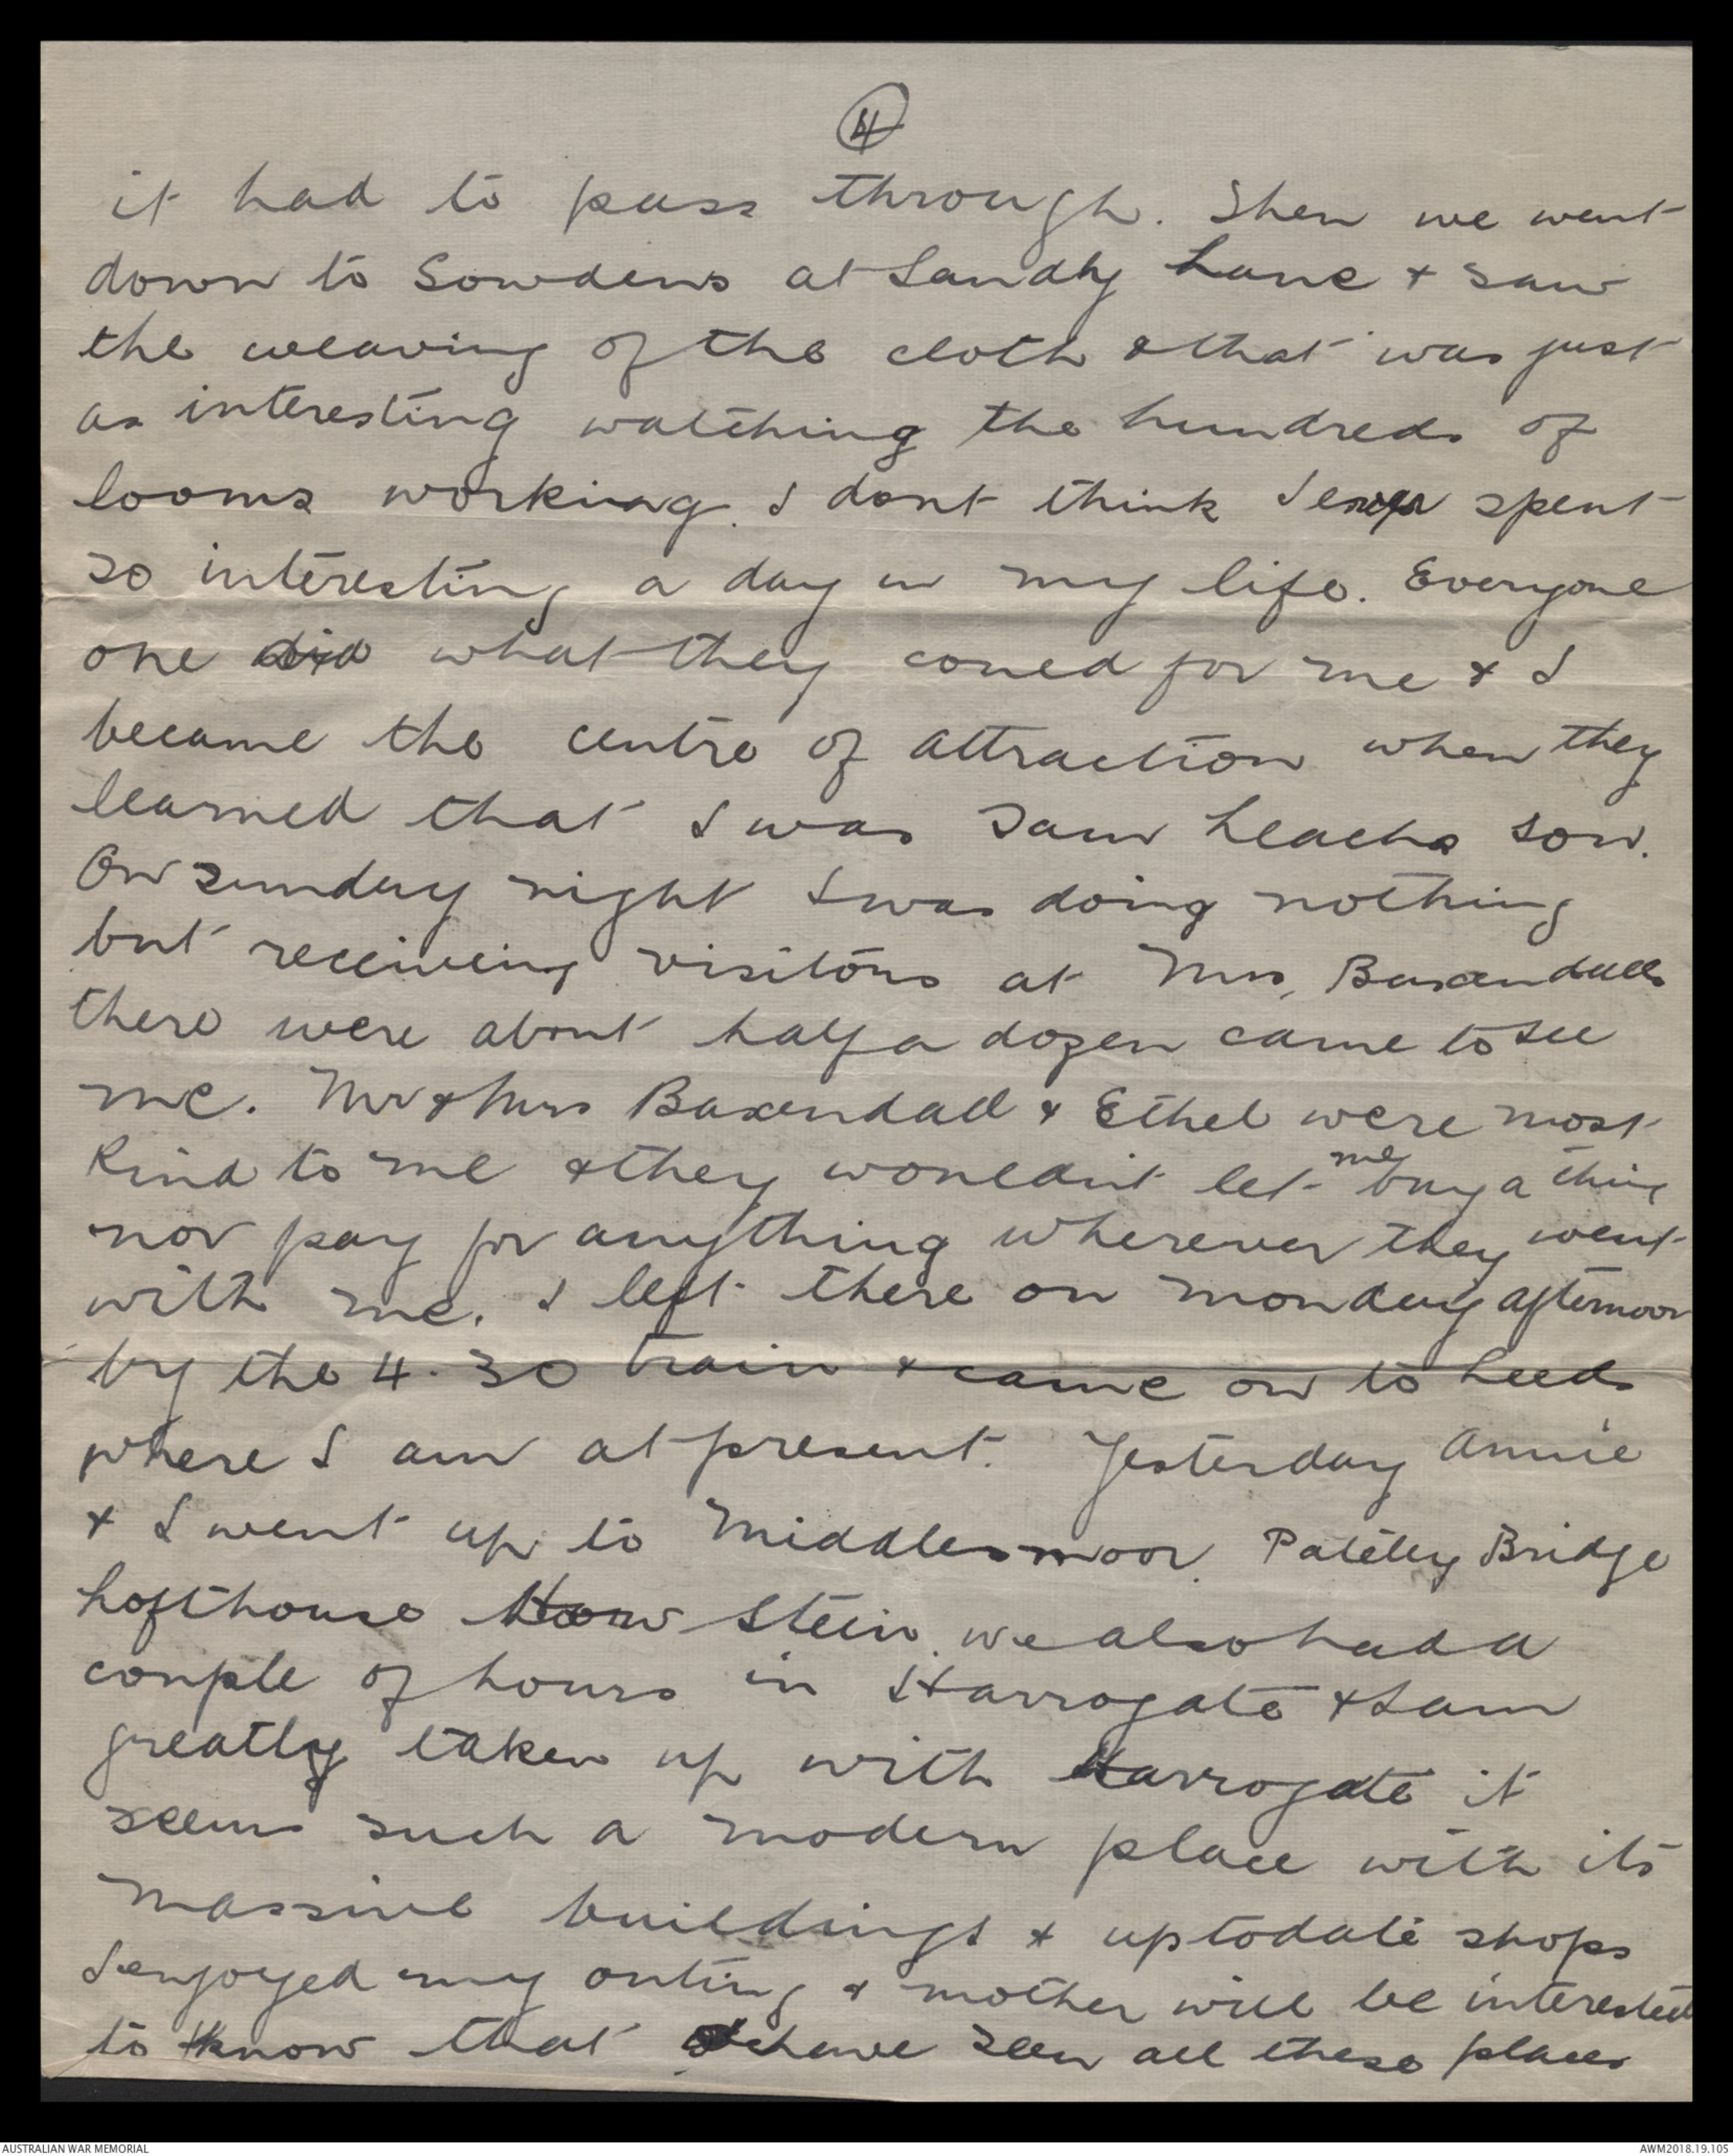 4
it had to pass through. Then we went
down to Sowdens at Sandy Lane & saw
the weaving of the cloth & that was just
as interesting watching the hundreds of
looms working. I dont think I ever spent
so interesting a day in my life. Everyone
one did what they coued for me & I
became the centre of attraction when they
learned that I was Sam Leachs son.
On Sunday night I was doing nothing
but receiving visitors at Mrs, Baxendalls
there were about half a dozen came to see
me. Mr & Mrs Baxendall & Ethel were most
kind to me & they wouldnt let me buy a thing
nor pay for anything wherever they went
with me. I left there on Monday afternoon
by the 4.30 train & came on to Leeds
where I am at present. Yesterday Annie
& I went up to Middlesmoor. Pateley Bridge
Lofthouse How Stein. we also had a
couple of hours in Harrogate & I am
greatly taken up with Harrogate it
seems such a modern place with its
massive buildings & uptodate shops
I enjoyed my outing & mother will be interested
to know that I have seen all these places
AUSTRALIAN WAR MEMORIAL
AWM2018.19.105